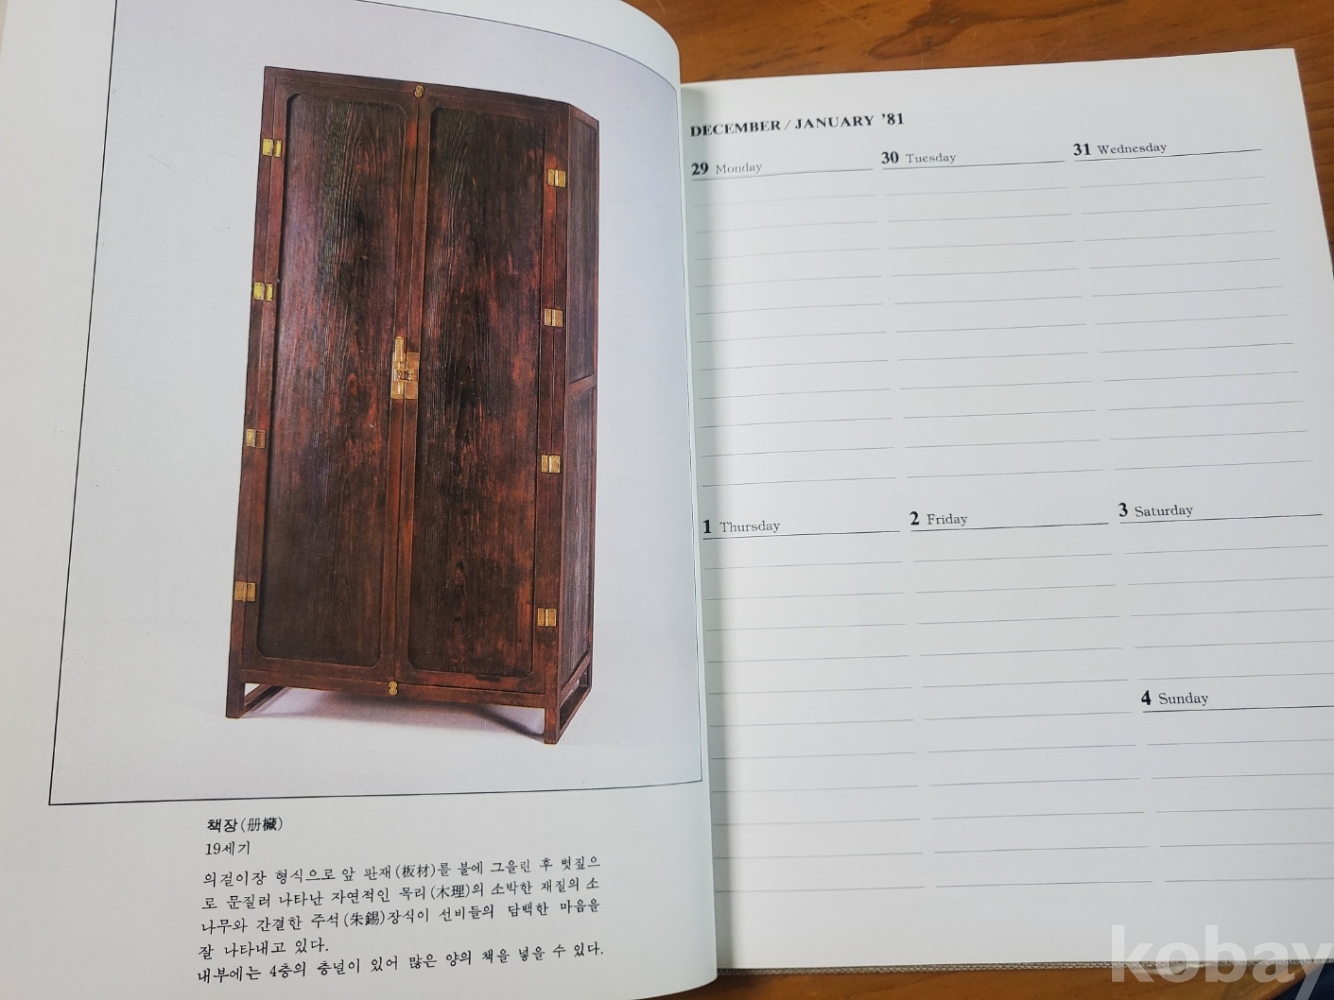 책장(册欌)
19세기
의걸이장 형식으로 앞 판재(板材)를 불에 그을린 후 볏짚으
로 문질러 나타난 자연적인 목리(木理)의 소박한 재질의 소
나무와 간결한 주석(朱錫)장식이 선비들의 담백한 마음을
잘 나타내고 있다.
내부에는 4층의 층널이 있어 많은 양의 책을 넣을 수 있다.
DECEMBER / JANUARY ’81
29 Monday
30 Tuesday
31 Wednesday
1 Thursday
2 Friday
3 Saturday
4 Sunday
kobay